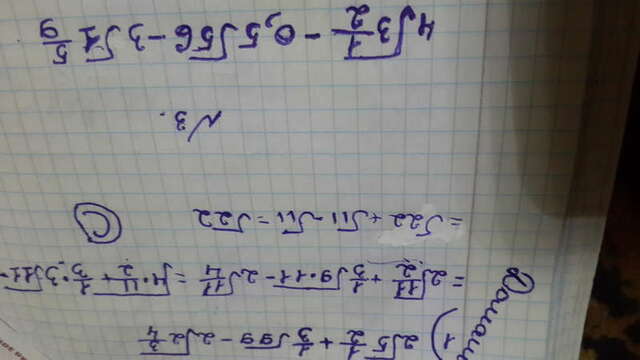 1) 2√5 1/2 + 1/3 √99 - 2√2 3/4
= 2√11/2 + 1/3 √9·11 - 2√11/4 = √4·11/2 + 1/3 · 3√11 -
= √22 + √11 - √11 = √22
C
№3.
4√3 1/2 - 0,5√56 - 3√1 5/9